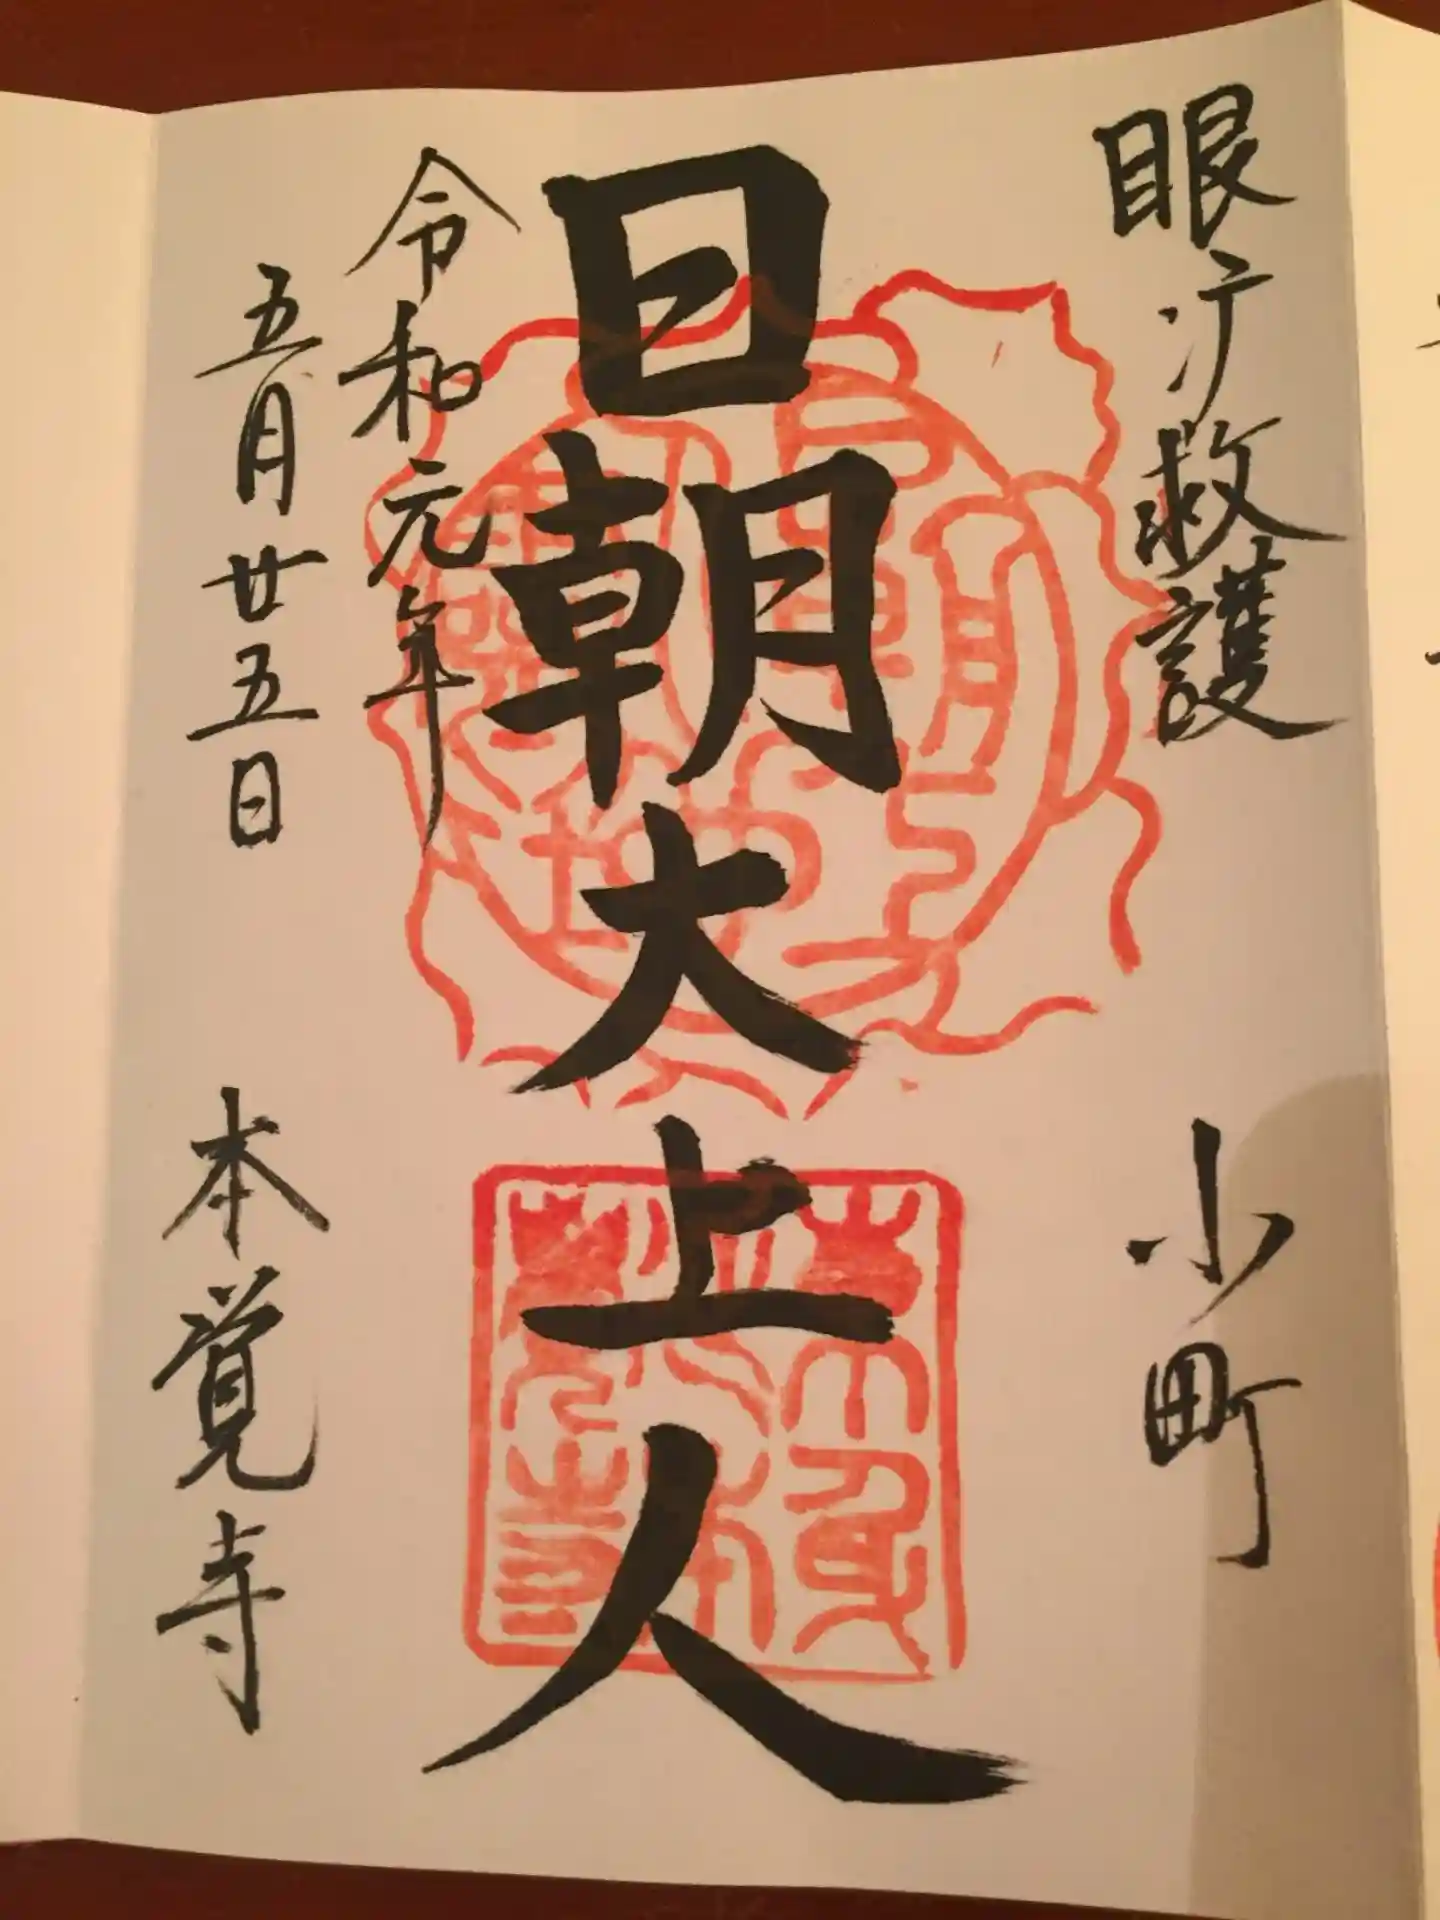 眼疒救護
小町
日朝大上人
令和元年
五月廿五日
本覚寺